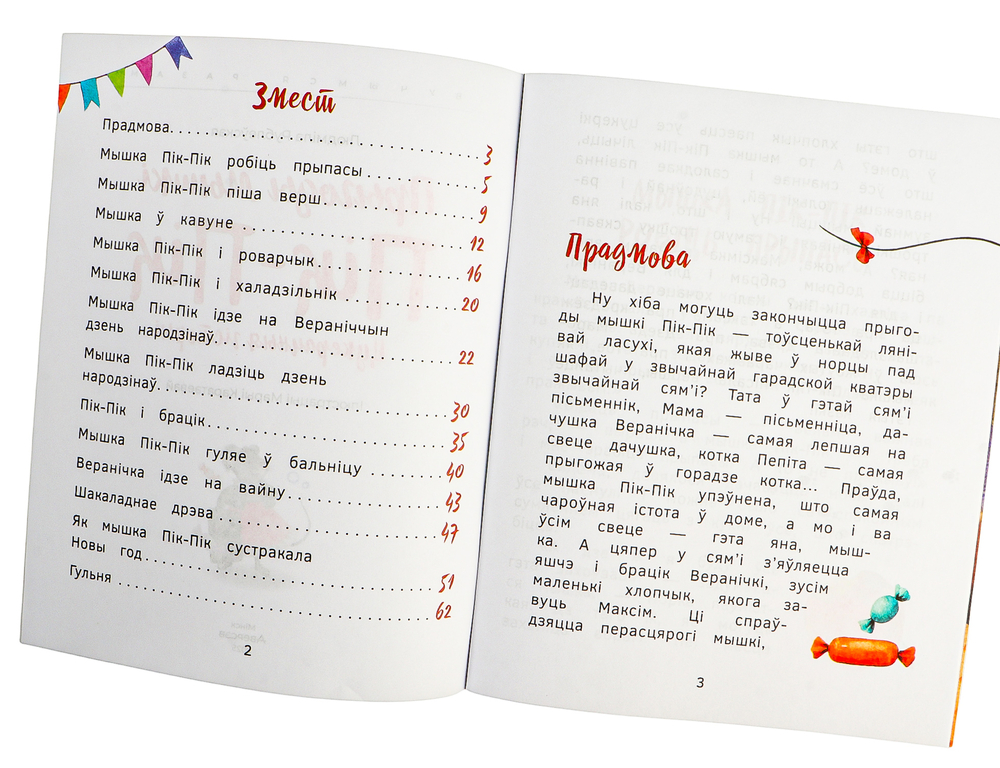 Змест
Прадмова. . . . . . . . . . . . . . . . . . . . . . . . . . . . . . 3
Мышка Пік-Пік робіць прыпасы . . . . . . . . . . . . 5
Мышка Пік-Пік піша верш. . . . . . . . . . . . . . . . . 9
Мышка ў кавуне . . . . . . . . . . . . . . . . . . . . . . . . 12
Мышка Пік-Пік і роварчык . . . . . . . . . . . . . . . . 16
Мышка Пік-Пік і халадзільнік . . . . . . . . . . . . . . 20
Мышка Пік-Пік ідзе на Вераніччын
дзень народзінаў. . . . . . . . . . . . . . . . . . . . . . . . 22
Мышка Пік-Пік ладзіць дзень
народзінаў. . . . . . . . . . . . . . . . . . . . . . . . . . . . . 30
Пік-Пік і брацік. . . . . . . . . . . . . . . . . . . . . . . . . 35
Мышка Пік-Пік гуляе ў бальніцу . . . . . . . . . . . 40
Веранічка ідзе на вайну. . . . . . . . . . . . . . . . . . 43
Шакаладнае дрэва . . . . . . . . . . . . . . . . . . . . . . 47
Як мышка Пік-Пік сустракала
Новы год . . . . . . . . . . . . . . . . . . . . . . . . . . . . . 51
Гульня . . . . . . . . . . . . . . . . . . . . . . . . . . . . . . . 62
2
Прадмова
Ну хіба могуць закончыцца прыго-
ды мышкі Пік-Пік — тоўсценькай ляні-
вай ласухі, якая жыве ў норцы пад
шафай у звычайнай гарадской кватэры
звычайнай сям’і? Тата ў гэтай сям’і
пісьменнік, Мама — пісьменніца, да-
чушка Веранічка — самая лепшая на
свеце дачушка, котка Пепіта — самая
прыгожая ў горадзе котка... Праўда,
мышка Пік-Пік упэўнена, што самая
чароўная істота ў доме, а мо і ва
ўсім свеце — гэта яна, мыш-
ка. А цяпер у сям’і з’яўляецца
яшчэ і брацік Веранічкі, зусім
маленькі хлопчык, якога за-
вуць Максім. Ці спраў-
дзяцца перасцярогі мышкі,
3